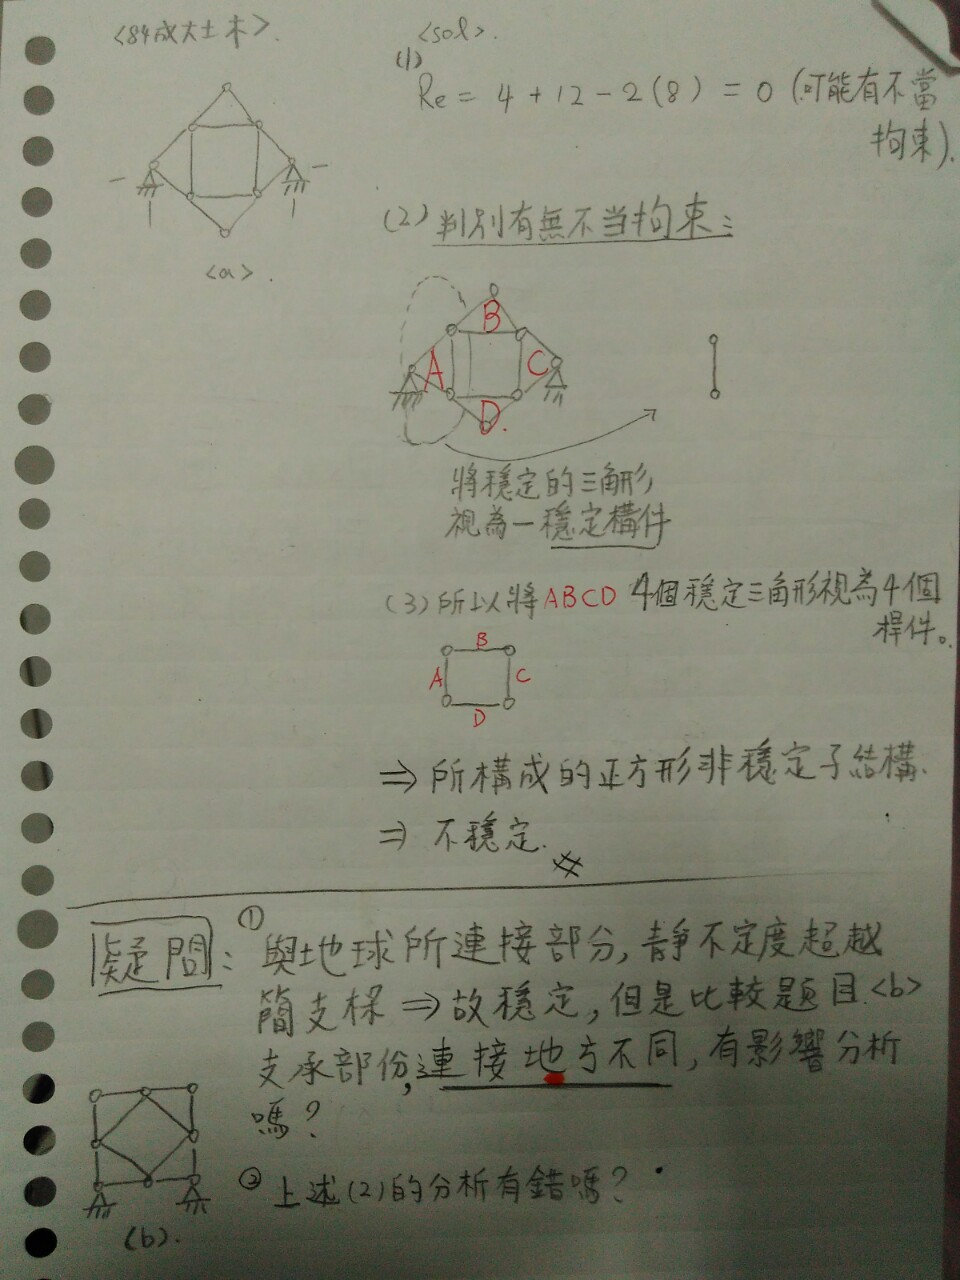 <84成大土木>.
<a>.
<sol>.
(1)
Re = 4 + 12 - 2(8) = 0 (可能有不當
拘束).
(2) 判別有無不当拘束:
B
A
C
D.
將穩定的三角形
視為一穩定構件
(3) 所以將ABCD 4個穩定三角形視為4個
桿件。
B
A
C
D
⇒ 所構成的正方形非穩定子結構.
⇒ 不穩定.
疑問:
① 與地球所連接部分,靜不定度超越
簡支樑 ⇒ 故穩定,但是比較題目<b>
支承部份,連接地方不同,有影響分析
嗎?
② 上述(2)的分析有錯嗎?
(b).